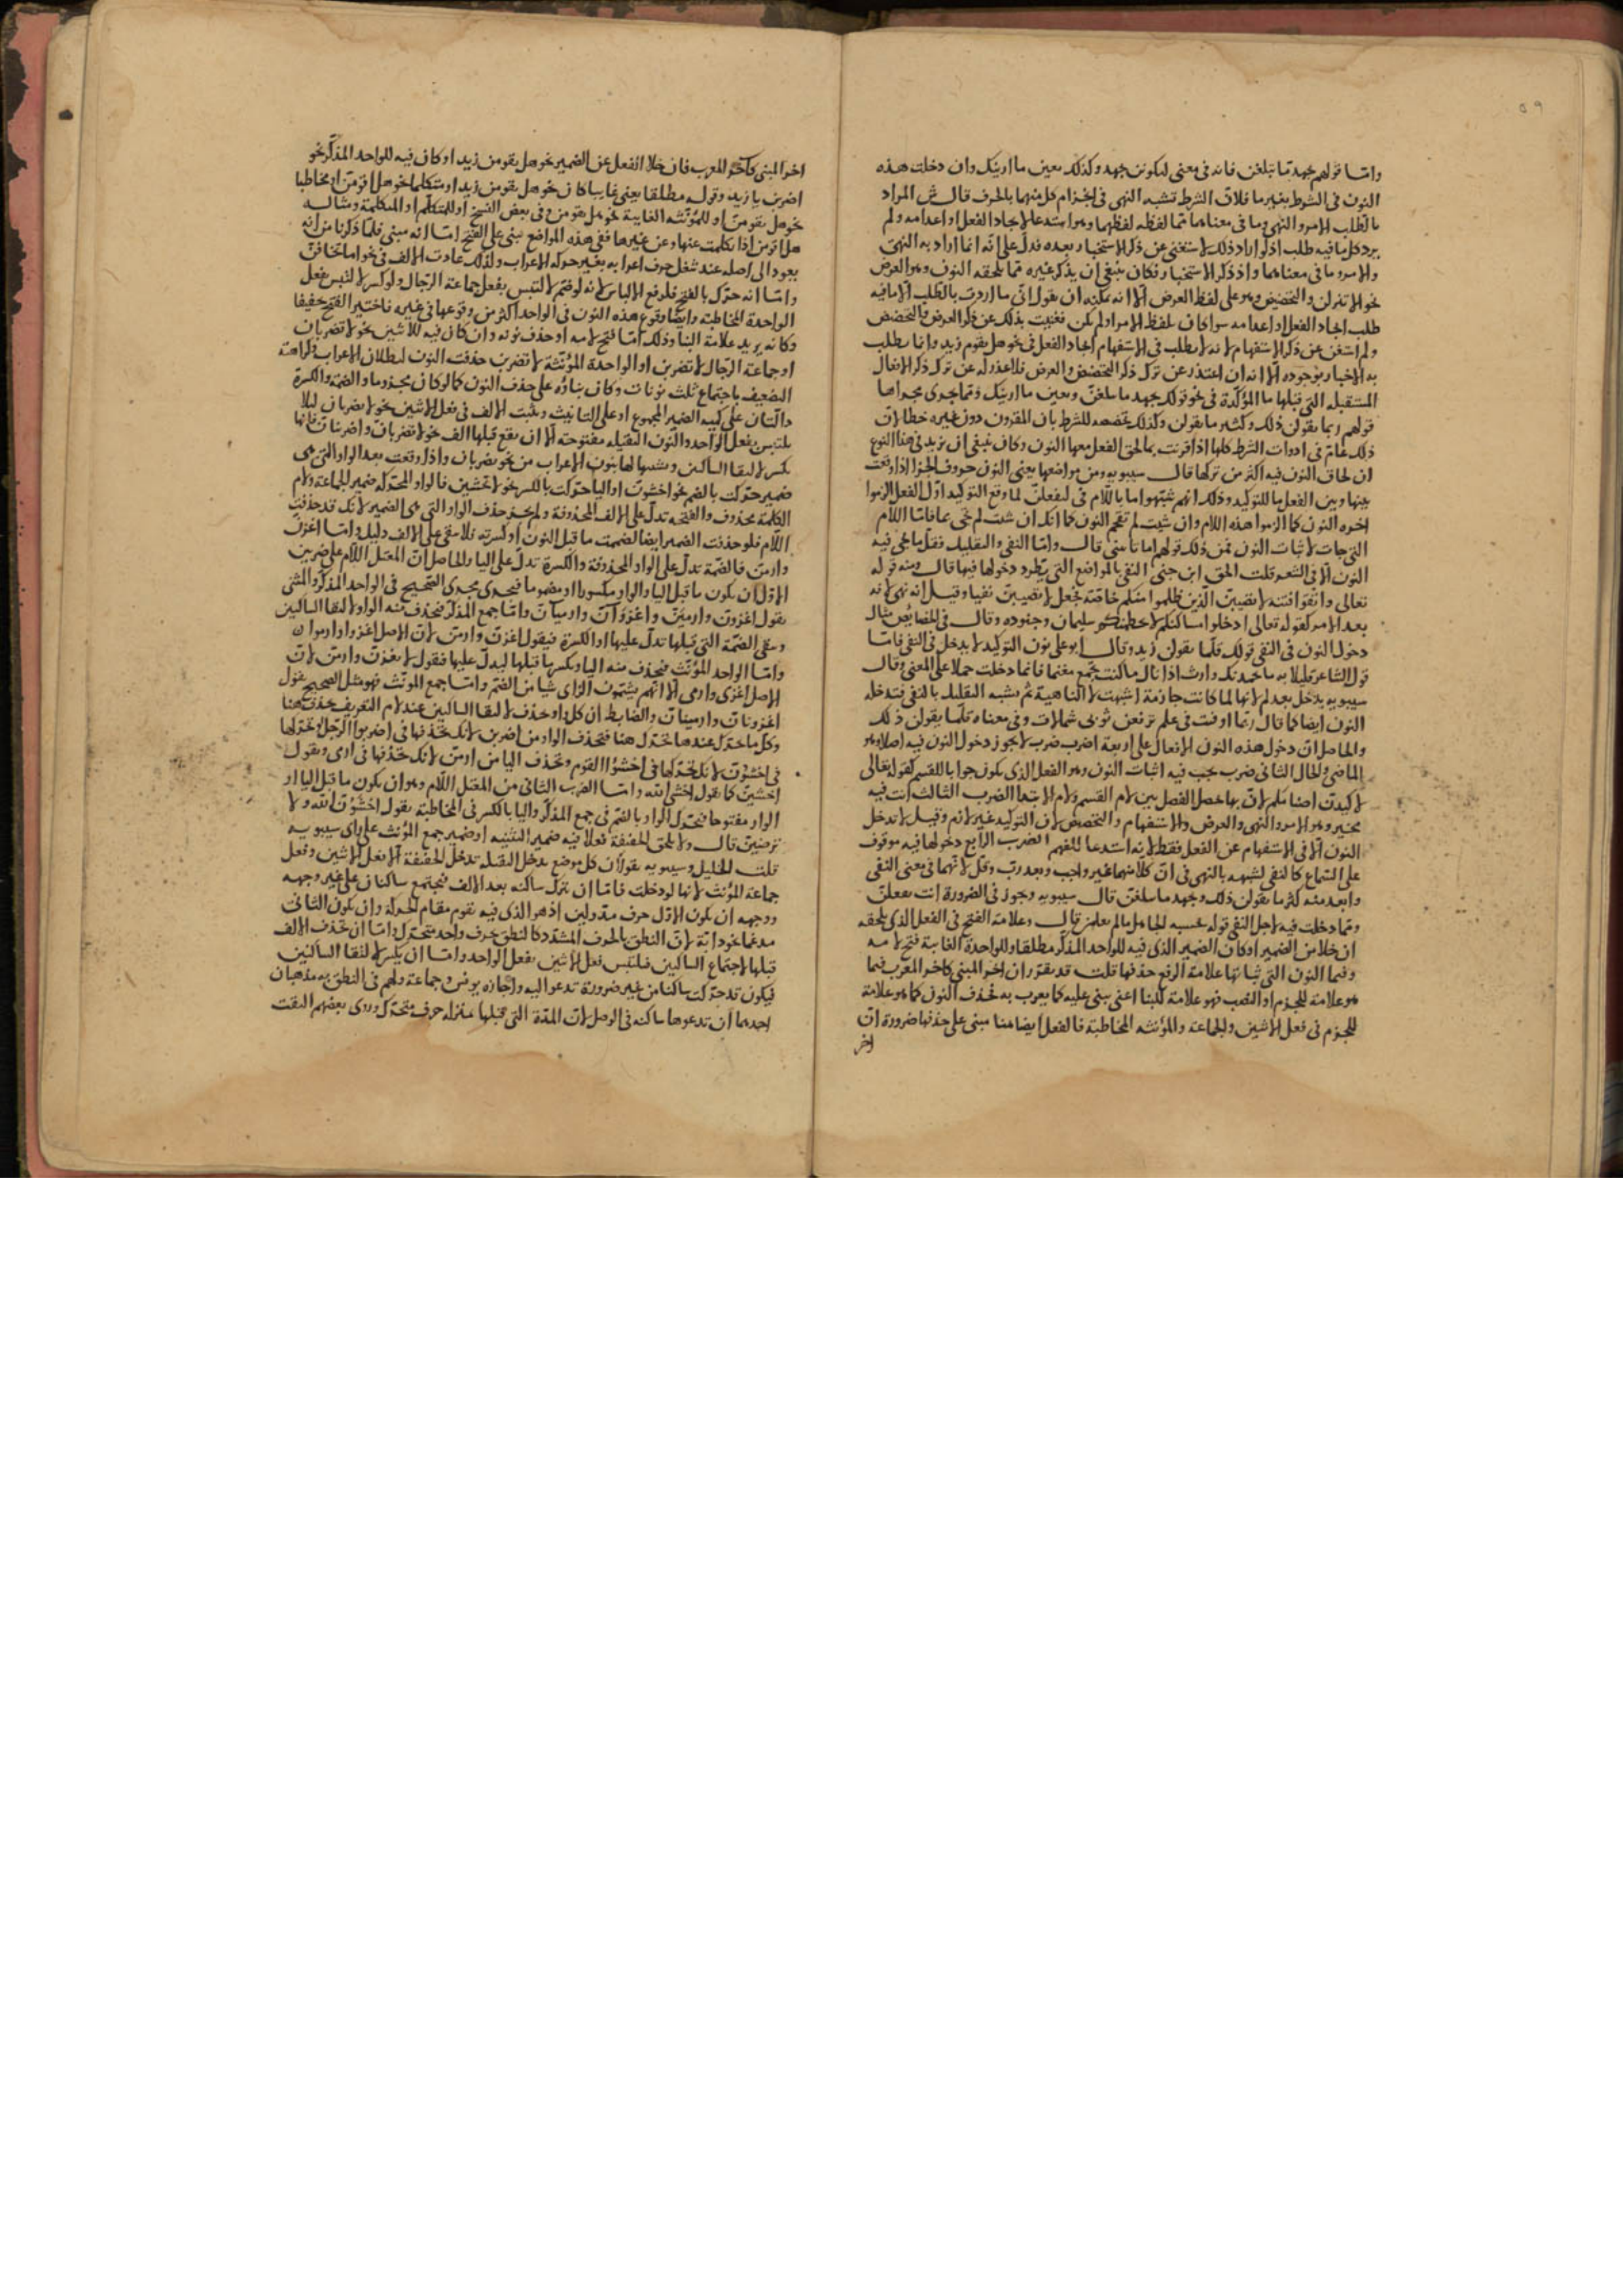 ٥٩
واما قولهم بجهد ما تبلغن فانه في معنى ليكونن بجهد وكذلك بعين ما ارينك وان دخلت هذه
النون في الشرط بغير ما فلان الشرط تشبه النهي في الجزام كل منهما بالحرف قال ش المراد
بالطلب الامر والنهي وما في معناهما مما لفظه لفظهما وهو استدعا لايجاد الفعل او اعدامه ولم
يرد كل ما فيه طلب اذ لو اراد ذلك لاستغنى عن ذكر الاستخبار بعده فدل على انه انما اراد به النهي
والامر وما في معناهما واذ ذكر الاستخبار فكان ينبغي ان يذكر غيره مما تلحقه النون وهو العرض
نحو الا تنزلن والتحضيض وهو على لفظ العرض الا انه يمكنه ان يقول اني ما اردت بالطلب الا ما فيه
طلب ايجاد الفعل او اعدامه سوا كان بلفظ الامر او لم يكن فغنيت بذلك عن ذكر العرض والتحضيض
ولم استغن عن ذكر الاستفهام لانه لا يطلب في الاستفهام ايجاد الفعل في نحو هل يقوم زيد وانما يطلب
به الاخبار بوجوده الا انه ان اعتذر عن ترك ذكر التحضيض والعرض فلا عذر له عن ترك ذكر الافعال
المستقبله التي قبلها ما المؤكدة في نحو قولك بجهد ما تبلغن وبعين ما ارينك ومما يجري مجراها
قولهم ربما يقولن ذلك وكثر ما يقولن وكذلك تخصيصه للشرط بان المقرون دون غيره خطا لان
ذلك عام في ادوات الشرط كلها اذا قرنت بما لحق الفعل معها النون وكان ينبغي ان يزيد في هذا النوع
ان لحاق النون فيه اكثر من تركها قال سيبويه ومن مواضعها يعني النون حروف الجزا اذا وقعت
بينها وبين الفعل ما للتوكيد وذلك انهم شبهوا ما باللام في ليفعلن لما وقع التوكيد اول الفعل الزموا
اخره النون كما الزموا هذه اللام وان شيت لم تقحم النون كما انك ان شيت لم تجئ بما فاما اللام
التي جات لاثبات النون فمن ذلك قولهم اما تاتيني قال واما النفي والتقليل فقل ما يجي فيه
النون الا في الشعر قلت الحق ابن جني النفي بالمواضع التي يطرد دخولها فيها قال ومنه قوله
تعالى واتقوا فتنة لا تصيبن الذين ظلموا منكم خاصة فجعل لا تصيبن نفيا وقيل انه نهي لانه
بعد الامر كقوله تعالى ادخلوا مساكنكم لا يحطمنكم سليمان وجنوده وقال في الخصايص مثال
دخول النون في النفي قولك قلما يقولن زيد وقال ابو علي نون التوكيد لا يدخل في النفي فاما
قول الشاعر قليلا به ما يحمدنك وارث اذا نال مما كنت تجمع مغنما فانما دخلت حملا على المعنى وقال
سيبويه يدخل بعد لم لانها لما كانت جازمة اشبهت لا الناهية ثم يشبه التقليل بالنفي فتدخله
النون ايضا كما قال ربما اوفيت في علم ترفعن ثوبي شمالات وفي معناه قلما يقولن ذلك
والحاصل ان دخول هذه النون الافعال على اربعة اضرب ضرب لا يجوز دخول النون فيه اصلا وهو
الماضي والحال الثاني ضرب يجب فيه اثبات النون وهو الفعل الذي يكون جوابا للقسم كقوله تعالى
لاكيدن اصنامكم لان بها حصل الفصل بين لام القسم ولام الابتدا الضرب الثالث انت فيه
مخير وهو الامر والنهي والعرض والاستفهام والتحضيض لان التوكيد غير لازم وقيل لا تدخل
النون الا في الاستفهام عن الفعل فقط لانه استدعا للفهم الضرب الرابع دخولها فيه موقوف
على السماع كالنفي لشبهه بالنهي في ان كلا منهما غير واجب وبعد رب وقل لانهما في معنى النفي
وابعد منه كثر ما يقولن ذلك وبجهد ما تبلغن قال سيبويه ويجوز في الضرورة انت تفعلن
ومما دخلت فيه لاجل النفي قوله يحسبه الجاهل ما لم يعلمن قال وعلامة الفتح في الفعل الذي تلحقه
ان خلا من الضمير او كان الضمير الذي فيه للواحد المذكر مطلقا وللواحدة الغايبة فتح لامه
وفيما النون التي ثباتها علامة الرفع حذفها قلت قد تقرر ان اخر المبني كاخر المعرب فيما
هو علامة للجزم او النصب فهو علامة للبنا اعني يبنى عليه كما يعرب به فحذف النون كما هو علامة
للجزم في فعل الاثنين والجماعة والمؤنثه المخاطبة فالفعل ايضا هنا مبني على حذفها ضرورة ان
اخر
اخر المبني كاخر المعرب فان خلا الفعل عن الضمير نحو هل يقومن زيد او كان فيه للواحد المذكر نحو
اضربن يا زيد وقوله مطلقا يعني غايبا كان نحو هل يقومن زيد او متكلما نحو هل اقومن او مخاطبا
نحو هل تقومن او للمؤنثه الغايبة نحو هل تقومن وفي بعض النسخ او للمتكلم او المتكلمة ومثاله
هل اقومن اذا تكلمت عنها وعن غيرها ففي هذه المواضع يبنى على الفتح اما انه مبني فلما ذكرنا من انه
يعود الى اصله عند شغل حرف اعرابه بغير حركة الاعراب ولذلك عادت الالف في نحو اما تخافن
واما انه حرك بالفتح فلرفع الالباس لانه لو ضم لالتبس بفعل جماعة الرجال ولو كسر لالتبس بفعل
الواحدة المخاطبة وايضا وقوع هذه النون في الواحد اكثر من وقوعها في غيره فاختير الفتح تخفيفا
وكانه يريد علامة البنا وذلك اما فتح لامه او حذف نونه وان كان فيه للاثنين نحو لا تضربان
او جماعة الرجال لا تضربن او الواحدة المؤنثة لا تضربن حذفت النون لبطلان الاعراب وكراهة
التضعيف باجتماع ثلث نونات وكان بناؤه على حذف النون كما لو كان مجزوما والضمة والكسرة
دالتان على كيد الضمير المجموع او على التانيث وثبت الالف في فعل الاثنين نحو لا تضربان ليلا
يلتبس بفعل الواحد والنون الثقيله مفتوحة الا ان يقع قبلها الف نحو لا تضربان واضربنان فانها
تكسر لالتقا الساكنين وتشبيها لها بنون الاعراب من نحو يضربان واذا وقعت بعد الواو التي هي
ضمير حركت بالضم نحو اخشون او اليا حركت بالكسر نحو لا تخشين فالواو المحركه ضمير الجماعة ولام
الكلمة محذوف والفتحة تدل على الالف المحذوفة ولم يجز حذف الواو التي هي الضمير لانك قد حذفت
اللام فلو حذفت الضمير ايضا لضممت ما قبل النون او كسرته فلا يبقى على الالف دليل واما اغزن
وارمن فالضمة تدل على الواو المحذوفة والكسرة تدل على اليا والحاصل ان المعتل اللام على ضربين
الاول ان يكون ما قبل اليا والواو مكسورا او مضموما فيجري مجرى الصحيح في الواحد المذكر والمثنى
يقول اغزون وارمين واغزوان وارميان واما جمع المذكر فتحذف منه الواو لالتقا الساكنين
وتبقى الضمة التي قبلها تدل عليها او الكسرة فيقول اغزن وارمن لان الاصل اغزوا وارموا ن
واما الواحد المؤنث فيحذف منه اليا ويكسر ما قبلها ليدل عليها فقول لا تغزن وارمن لان
الاصل اغزي وارمي الا انهم يشمون الزاي شيا من الضم واما جمع المونث فهو مثل الصحيح تقول
اغزونان وارمينان والضابط ان كل واو حذف لالتقا الساكنين عند لام التعريف حذفت هنا
وكل ما تحرك عندها تحرك هنا فتحذف الواو من اضربن لانك تحذفها في اضربوا الرجل وتحركها
في اخشون لانك تحركها في اخشوا القوم وتحذف اليا من ارمن لانك تحذفها في ارمي وتقول
اخشين كما تقول اخشي الله واما الضرب الثاني من المعتل اللام وهو ان يكون ما قبل اليا او
الواو مفتوحا فتحرك الواو بالضم في جمع المذكر واليا بالكسر في المخاطبة يقول اخشون الله ولا
ترضين قال ولا تلحق الخفيفة فعلا فيه ضمير التثنيه او ضمير جمع المؤنث على راي سيبويه
قلت الخليل وسيبويه يقولان كل موضع يدخل الثقيلة تدخل الخفيفة الا فعل الاثنين وفعل
جماعة المؤنث لانها لو دخلت فاما ان تترك ساكنه بعد الالف فيجتمع ساكنان على غير وجهه
ووجهه ان يكون الاول حرف مد ولين اذ هو الذي فيه يقوم مقام الحركة وان يكون الثاني
مدغما نحو دابة لان النطق بالحرف المشدد كالنطق بحرف واحد متحرك واما ان تحذف الالف
قبلها لاجتماع الساكنين فيلتبس فعل الاثنين بفعل الواحد واما ان يكسر لالتقا الساكنين
فيكون قد حركت ساكنا من غير ضرورة تدعو اليه واجازه يونس وجماعة ولهم في النطق به مذهبان
احدهما ان تدعوها ساكنه في الوصل لان المدة التي قبلها بمنزله حرف متحرك وروى بعضهم التقت